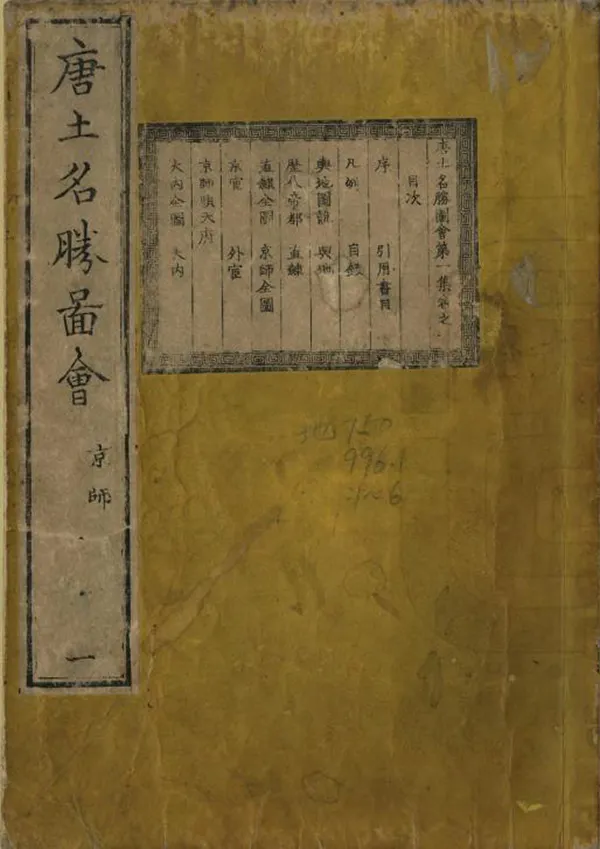 唐土名勝圖會
京師
一
唐土名勝圖會第一集卷之一
目次
序 引用書目
凡例 目録
輿地圖說 輿地
歷代帝都 直隷
直隷全圖 京師全圖
京官 外官
京師順天府
大内全圖 大内
地 750
996.1